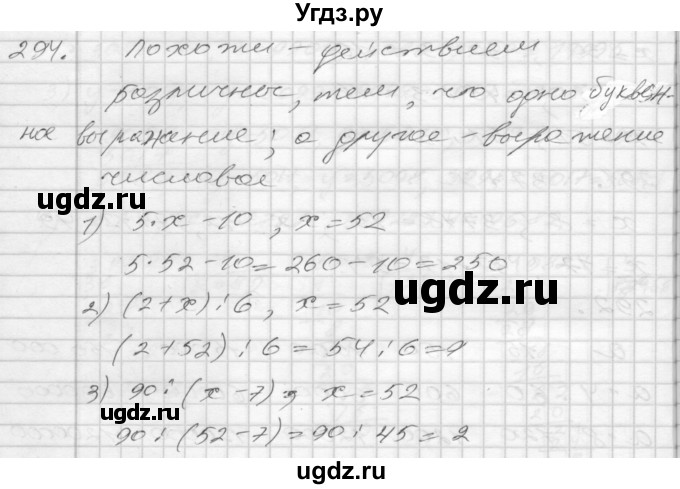 Угдз.ру
294. Похожи - действием
различные, тем, что одно буквен-
ное выражение; а другое - выражение
числовое
ugdz.ru
1) 5·x - 10, x = 52
5·52 - 10 = 260 - 10 = 250
ugdz.ru
2) (2+x) : 6, x = 52
(2+52) : 6 = 54 : 6 = 9
3) 90 : (x - 7), x = 52
ugdz.ru
90 : (52 - 7) = 90 : 45 = 2
ugdz.ru